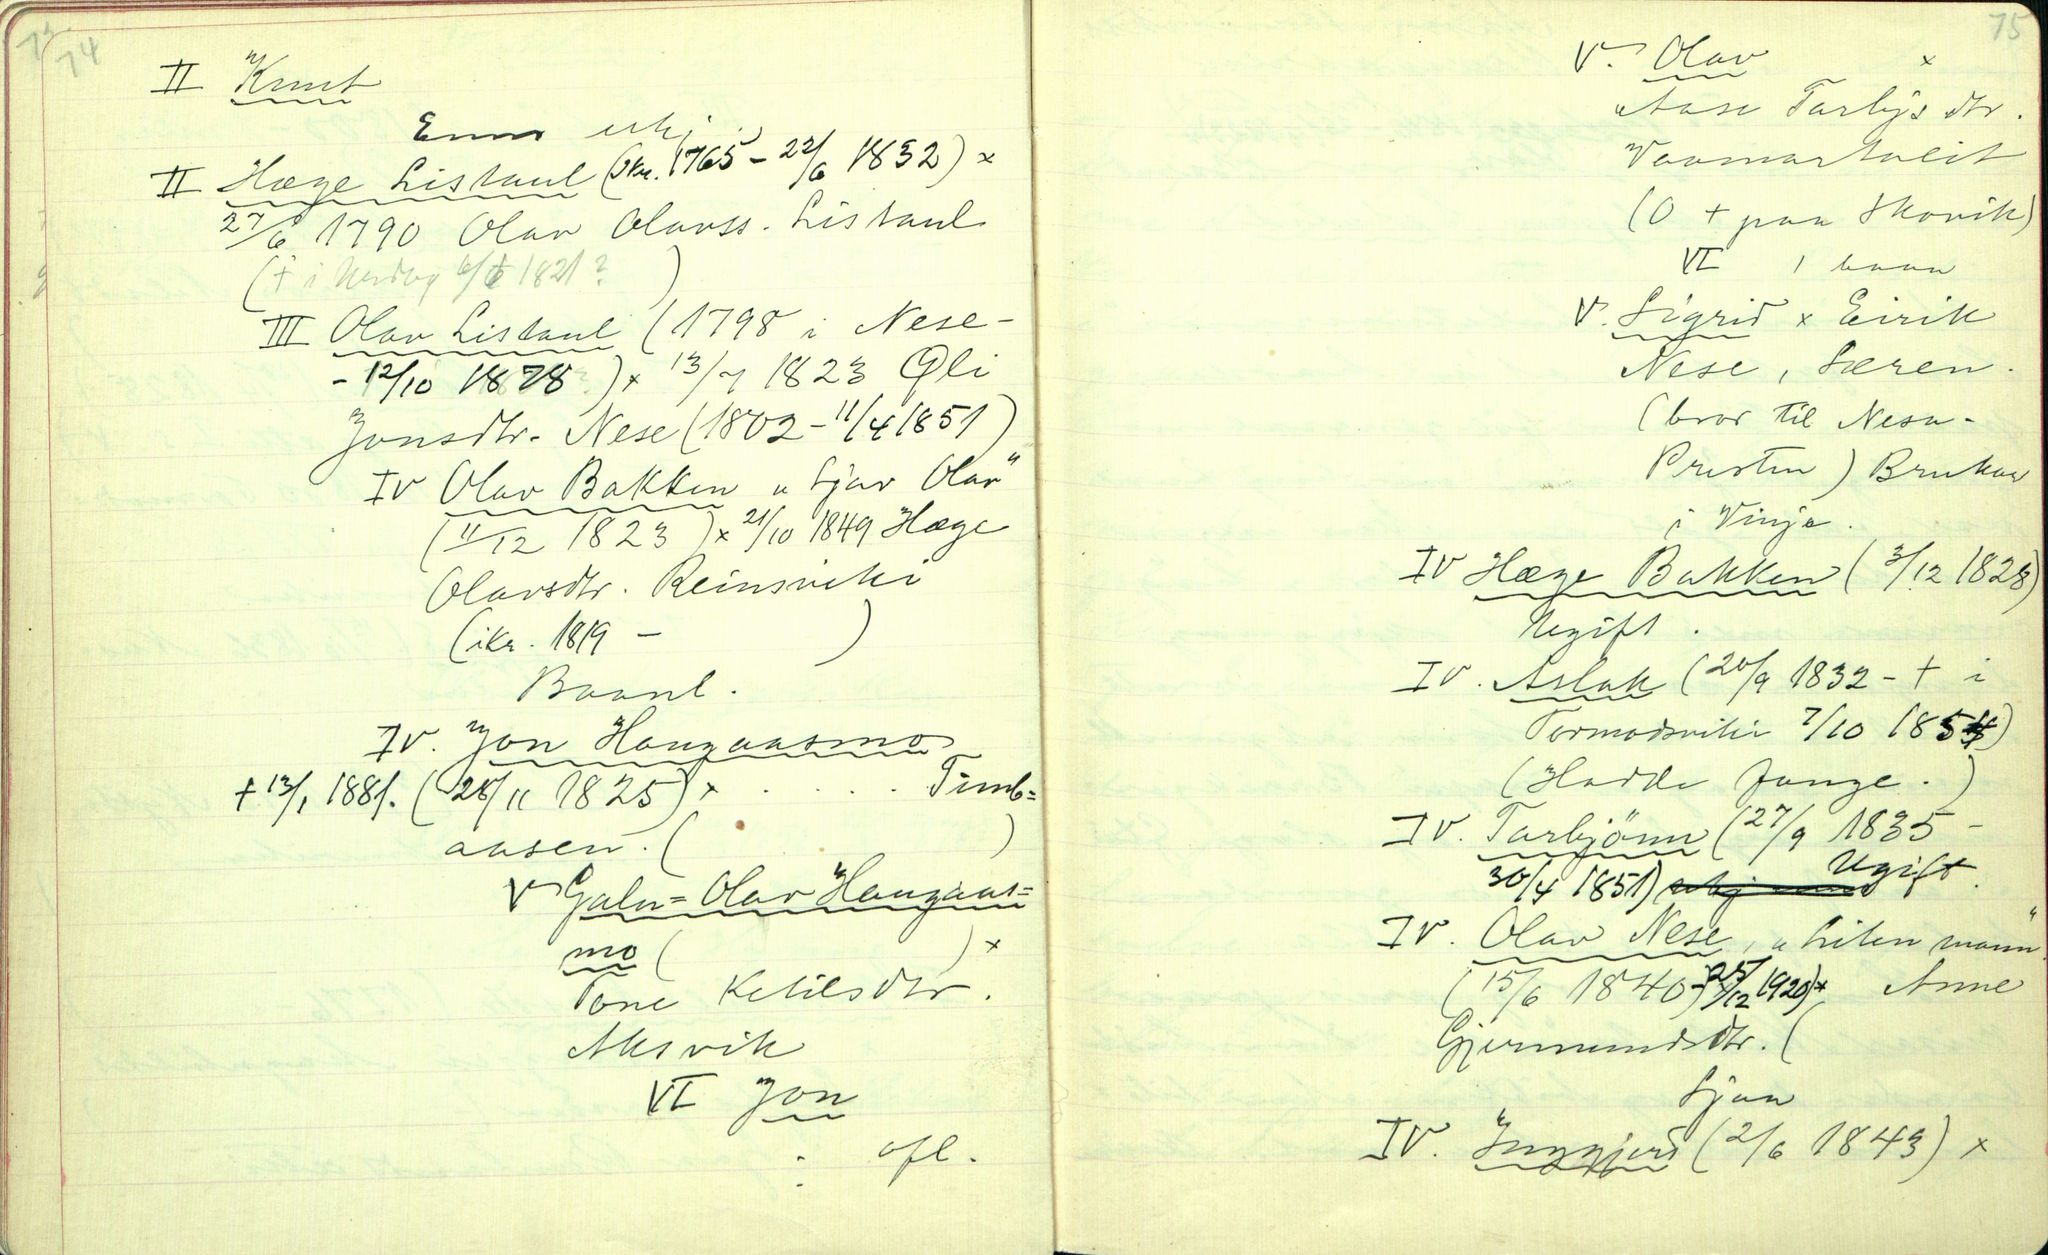 74
II Knut
Enno ukj.
II Hæge Listaul (ikr. 1765 - 22/6 1852) x
27/6 1790 Olav Olavss. Listaul
(† i 6/6 1821? )
III Olav Listaul (1798 i Nese -
- 12/10 1878 ) x 13/7 1823 Gli
Jonsdtr. Nese (1802 - 11/4 1851)
IV Olav Bakken „Sjav Olav"
(11/12 1823 ) x 21/10 1849 Hæge
Olavsdtr. Reinsviki
(ikr. 1819 - )
Baanl.
IV. Jon Haugaasmo
† 13/1 1881. (28/11 1825) x . . . . . Timb=
aasen. ( )
V Galn=Olav Haugaas=
mo ( ) x
Tone Ketilsdtr.
Aksvik
VI Jon
: ofl.
75
V. Olav x
Aase Tarbjs dtr.
Vaamartveit
(O † paa Skovik)
VI 1 baan
V. Sigrid x Eirik
Nese, Særen.
(bror til Nesa-
Presten) Brukar
i Vinje.
IV Hæge Bakken (3/12 1828)
Ugift.
IV. Aslak (20/9 1832 - † i
Tormodsviki 7/10 1854)
(Hadde fange.)
IV. Tarbjönn (27/9 1835 -
30/4 1851) Ugift.
IV. Olav Nese, „Liten mann"
(15/6 1840 - 25/12 1920) x Anne
Gjermundsdtr. (
Sjaa
IV. Inggjerd (2/6 1843) x